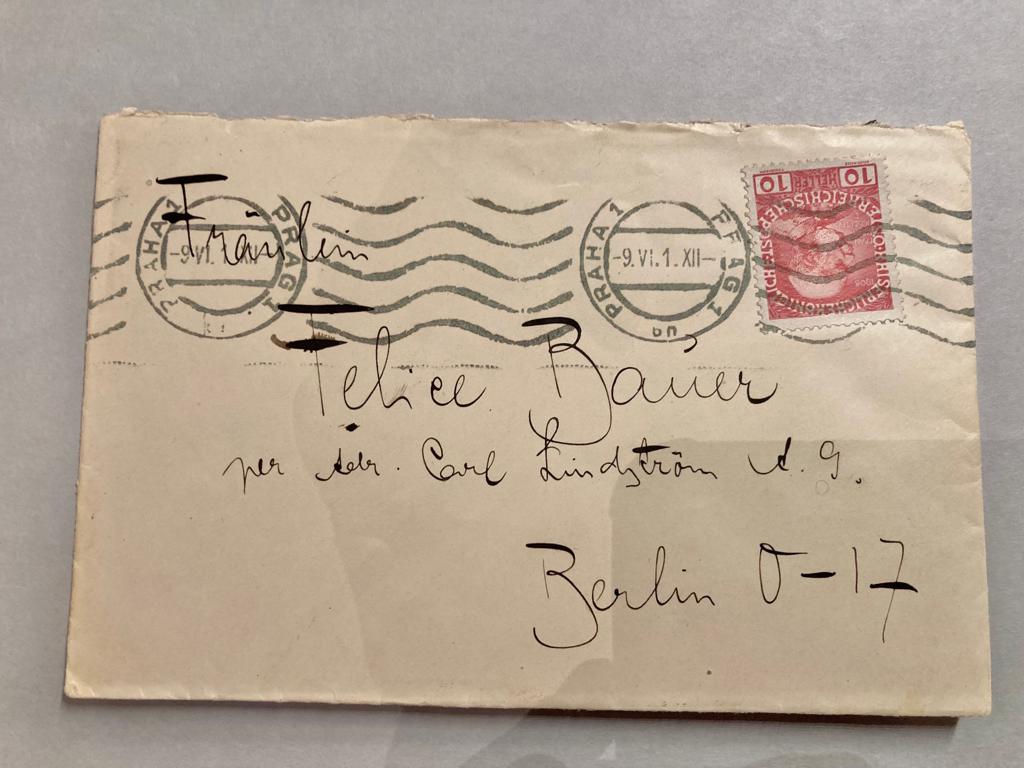 PRAHA 1 PRAG 1
-9.VI.1.XII-
PRAHA 1 PRAG 1
-9.VI.1.XII-
10 HELLER 10
Fräulein
Felice Bauer
per Adr. Carl Lindström A. G.
Berlin O-17